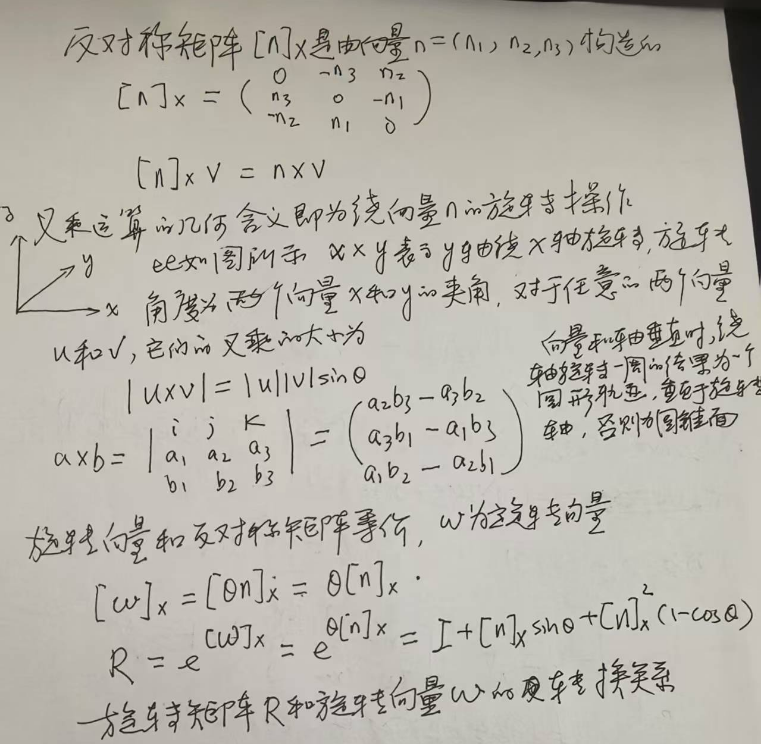 反对称矩阵[n]×是由向量n=(n1, n2, n3)构造的
[n]× = ( 0 -n3 n2
n3 0 -n1
-n2 n1 0 )
[n]× v = n×v
叉乘运算的几何含义即为绕向量n的旋转操作
z y x
如图所示 x×y表示y轴绕x轴旋转,旋转
角度为两个向量x和y的夹角,对于任意的两个向量
u和v,它们的叉乘的大小为
|u×v| = |u||v|sinθ
a×b = | i j k
a1 a2 a3
b1 b2 b3 | = ( a2b3 - a3b2
a3b1 - a1b3
a1b2 - a2b1 )
向量和轴垂直时,绕
轴旋转一周的结果为一个
圆形轨迹,垂直于旋转
轴,否则为圆锥面
旋转向量和反对称矩阵等价,w为旋转向量
[w]× = [θn]× = θ[n]×.
R = e^[w]× = e^θ[n]× = I + [n]× sinθ + [n]×² (1-cosθ)
旋转矩阵R和旋转向量w的转换关系